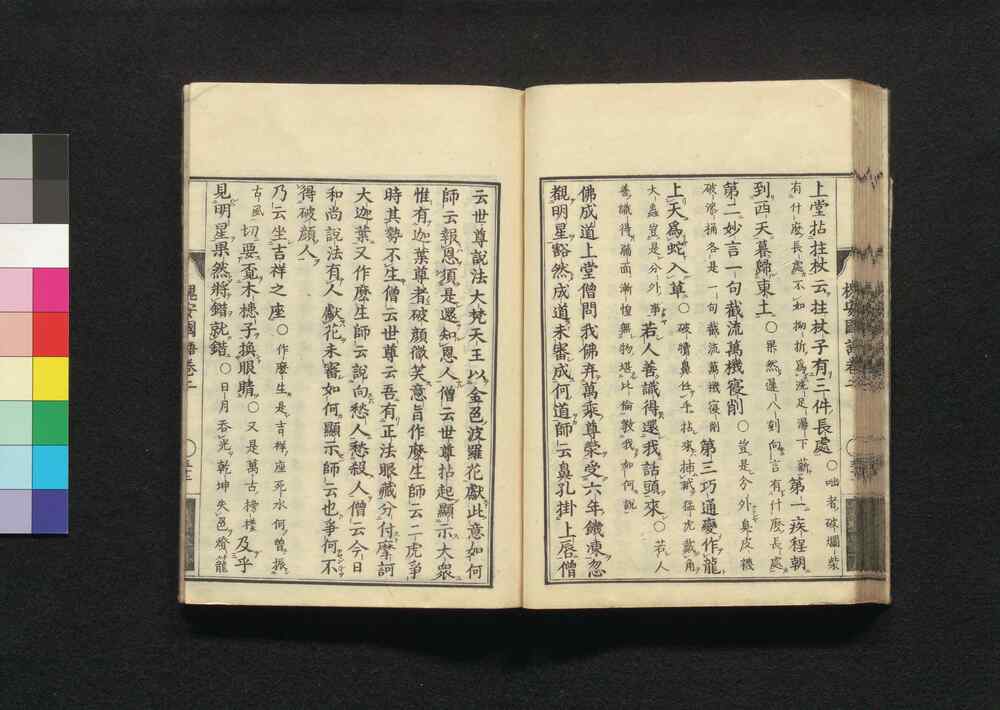 上堂拈拄杖云拄杖子有三件長處○咄者破爛柴
有什麼長處不如拗折爲洗足湯下薪第一疾程朝
到西天暮歸東土○果然遲八刻向言有什麼長處
第二妙言一句截流萬機寢削○豈是分外臭皮襪
破草鞋各是一句截流萬機寢削第三巧通變作龍
上天爲蛇入草○破犢鼻 手拈來捕 猛虎戴角
大蟲豈是分外事若人善識得還我話頭來○若人
善識得滿面慚惶無物堪比倫敎我如何說
佛成道上堂僧問我佛弃萬乘尊榮受六年饑凍忽
觀明星豁然成道未審成何道師云鼻孔掛上唇僧
槐安國語卷二
云世尊說法大梵天王以金色波羅花獻此意如何
師云報恩須是還知恩人僧云世尊拈起顯示大衆
惟有迦葉尊者破顏微笑意旨作麼生師云二虎爭
時其勢不生僧云世尊云吾有正法眼藏分付摩訶
大迦葉又作麼生師云說向愁人愁殺人僧云今日
和尚說法有人獻花未審如何顯示師云也爭何不
得破顏人
乃云坐吉祥之座○作麼生是吉祥座死水何曾振
古風切要 木槵子換眼睛○又是萬古 及乎
見明星果然將錯就錯○日月吞光乾坤失色 籠
槐安國語卷二